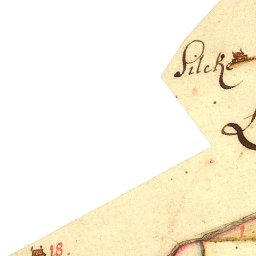 Silcke
18.